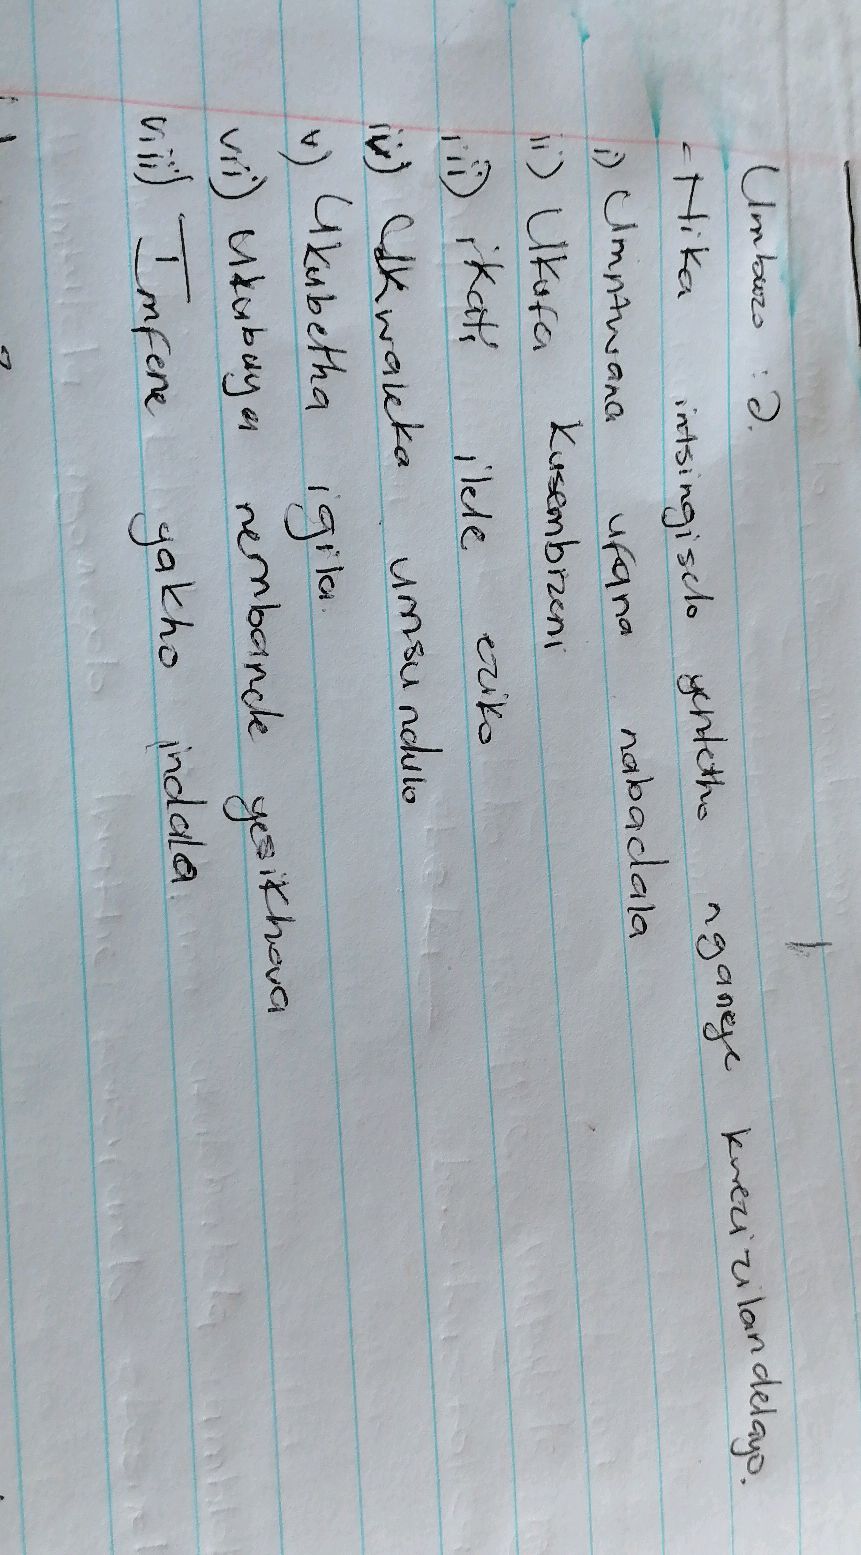 Umbuzo : 2.
- Nika intsingiselo yentetho nganeye kwezi zilandelayo.
i) Umntwana ufana nabadala
ii) Ukufa kusembizeni
iii) ikati ilele eziko
iv) Ukwaleka umsundulo
v) Ukubetha igila.
vii) Ukubuya nembande yesikhova
viii) Imfene yakho indala.